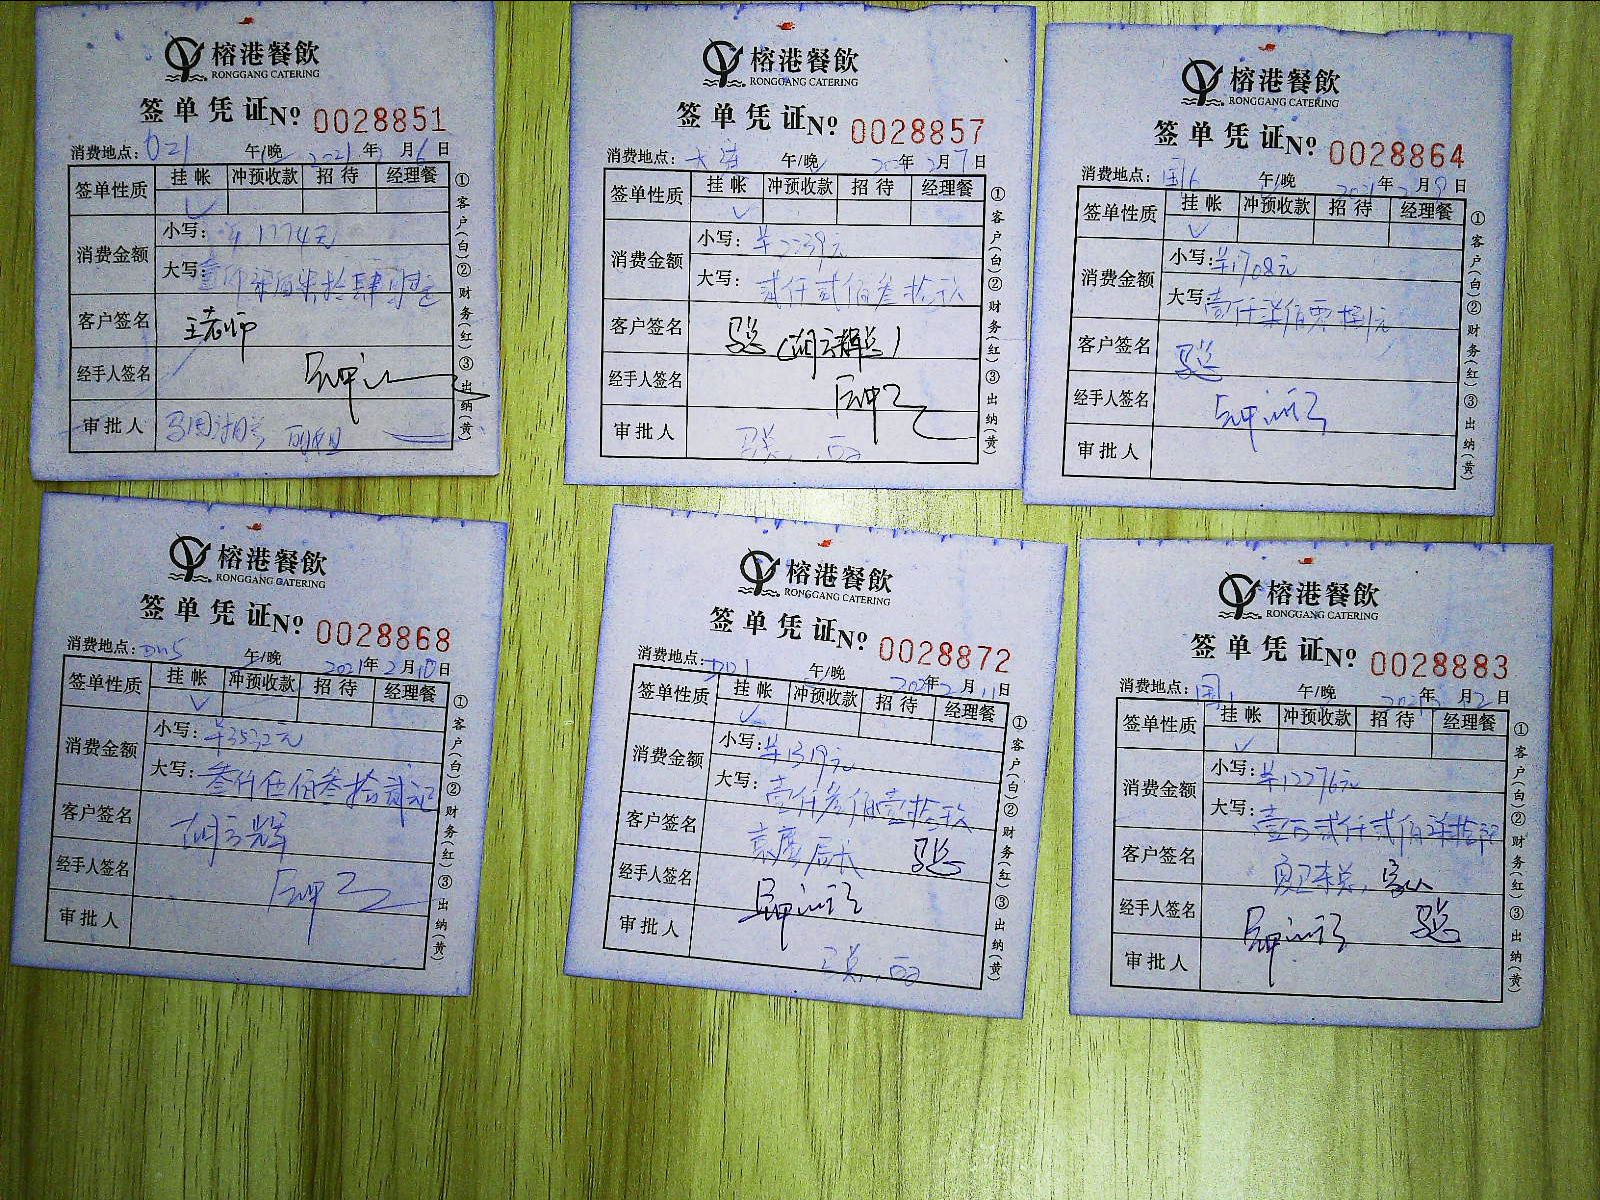 榕港餐飲
RONGGANG CATERING
签单凭证No 0028851
消费地点: 021 午/晚 2021年 月6日
签单性质 挂帐 冲预收款 招待 经理餐
消费金额 小写: ¥1774元
大写: 壹仟柒佰柒拾肆
客户签名 王老师
经手人签名
审批人
①客户(白)②财务(红)③出纳(黄)
榕港餐飲
RONGGANG CATERING
签单凭证No 0028857
消费地点: 午/晚 年2月7日
签单性质 挂帐 冲预收款 招待 经理餐
消费金额 小写: ¥2239元
大写: 贰仟贰佰叁拾玖
客户签名
经手人签名
审批人
①客户(白)②财务(红)③出纳(黄)
榕港餐飲
RONGGANG CATERING
签单凭证No 0028864
消费地点: 午/晚 2021年2月9日
签单性质 挂帐 冲预收款 招待 经理餐
消费金额 小写: ¥1708元
大写: 壹仟柒佰零捌元
客户签名
经手人签名
审批人
①客户(白)②财务(红)③出纳(黄)
榕港餐飲
RONGGANG CATERING
签单凭证No 0028868
消费地点: 午/晚 2021年2月10日
签单性质 挂帐 冲预收款 招待 经理餐
消费金额 小写: ¥3532元
大写: 叁仟伍佰叁拾贰元
客户签名
经手人签名
审批人
①客户(白)②财务(红)③出纳(黄)
榕港餐飲
RONGGANG CATERING
签单凭证No 0028872
消费地点: 午/晚 年2月11日
签单性质 挂帐 冲预收款 招待 经理餐
消费金额 小写: ¥1319元
大写: 壹仟叁佰壹拾玖
客户签名
经手人签名
审批人
①客户(白)②财务(红)③出纳(黄)
榕港餐飲
RONGGANG CATERING
签单凭证No 0028883
消费地点: 午/晚 年 月2日
签单性质 挂帐 冲预收款 招待 经理餐
消费金额 小写: ¥12276元
大写: 壹万贰仟贰佰柒拾
客户签名
经手人签名
审批人
①客户(白)②财务(红)③出纳(黄)